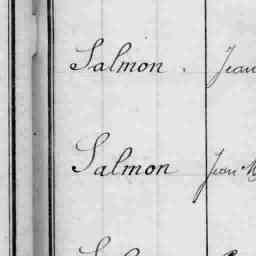 Salmon . Jean
Salmon Jean M